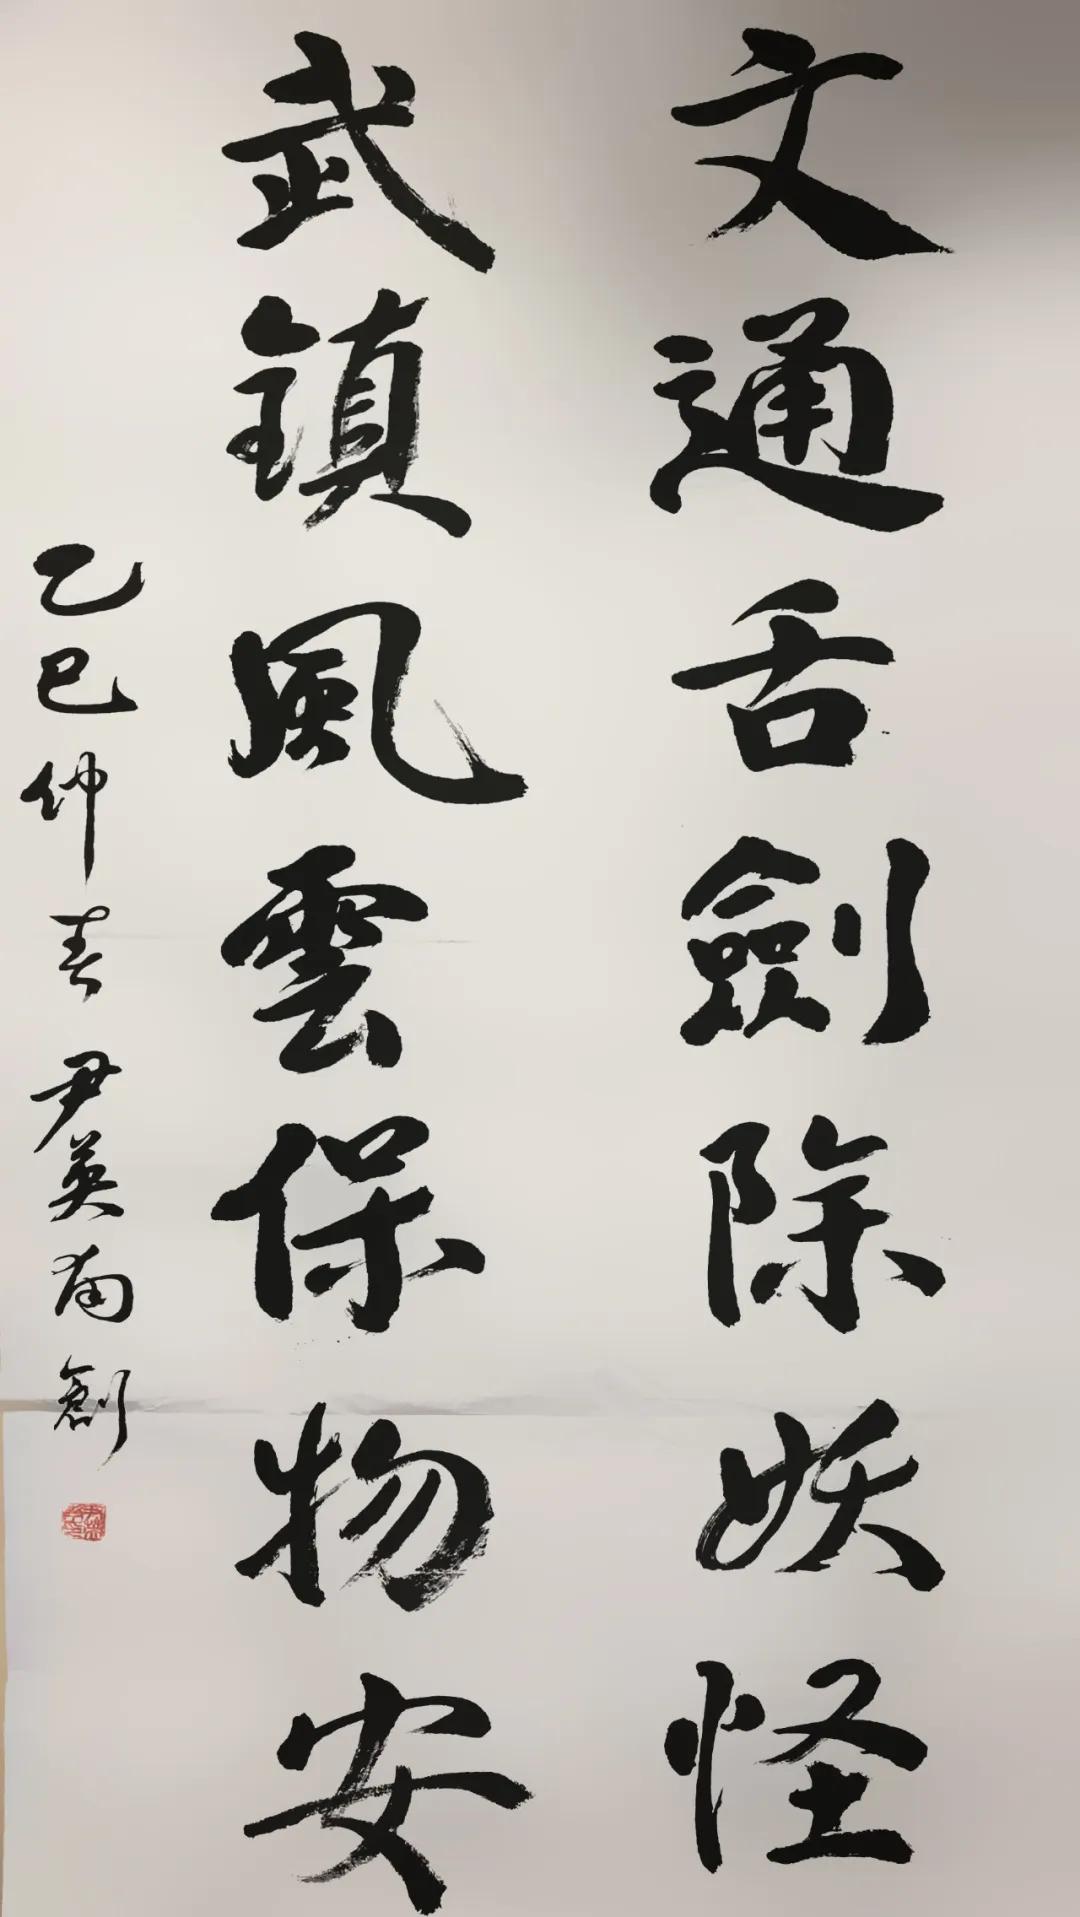 文通舌劍除妖怪
武鎮風雲保物安
乙巳仲春 尹英南創